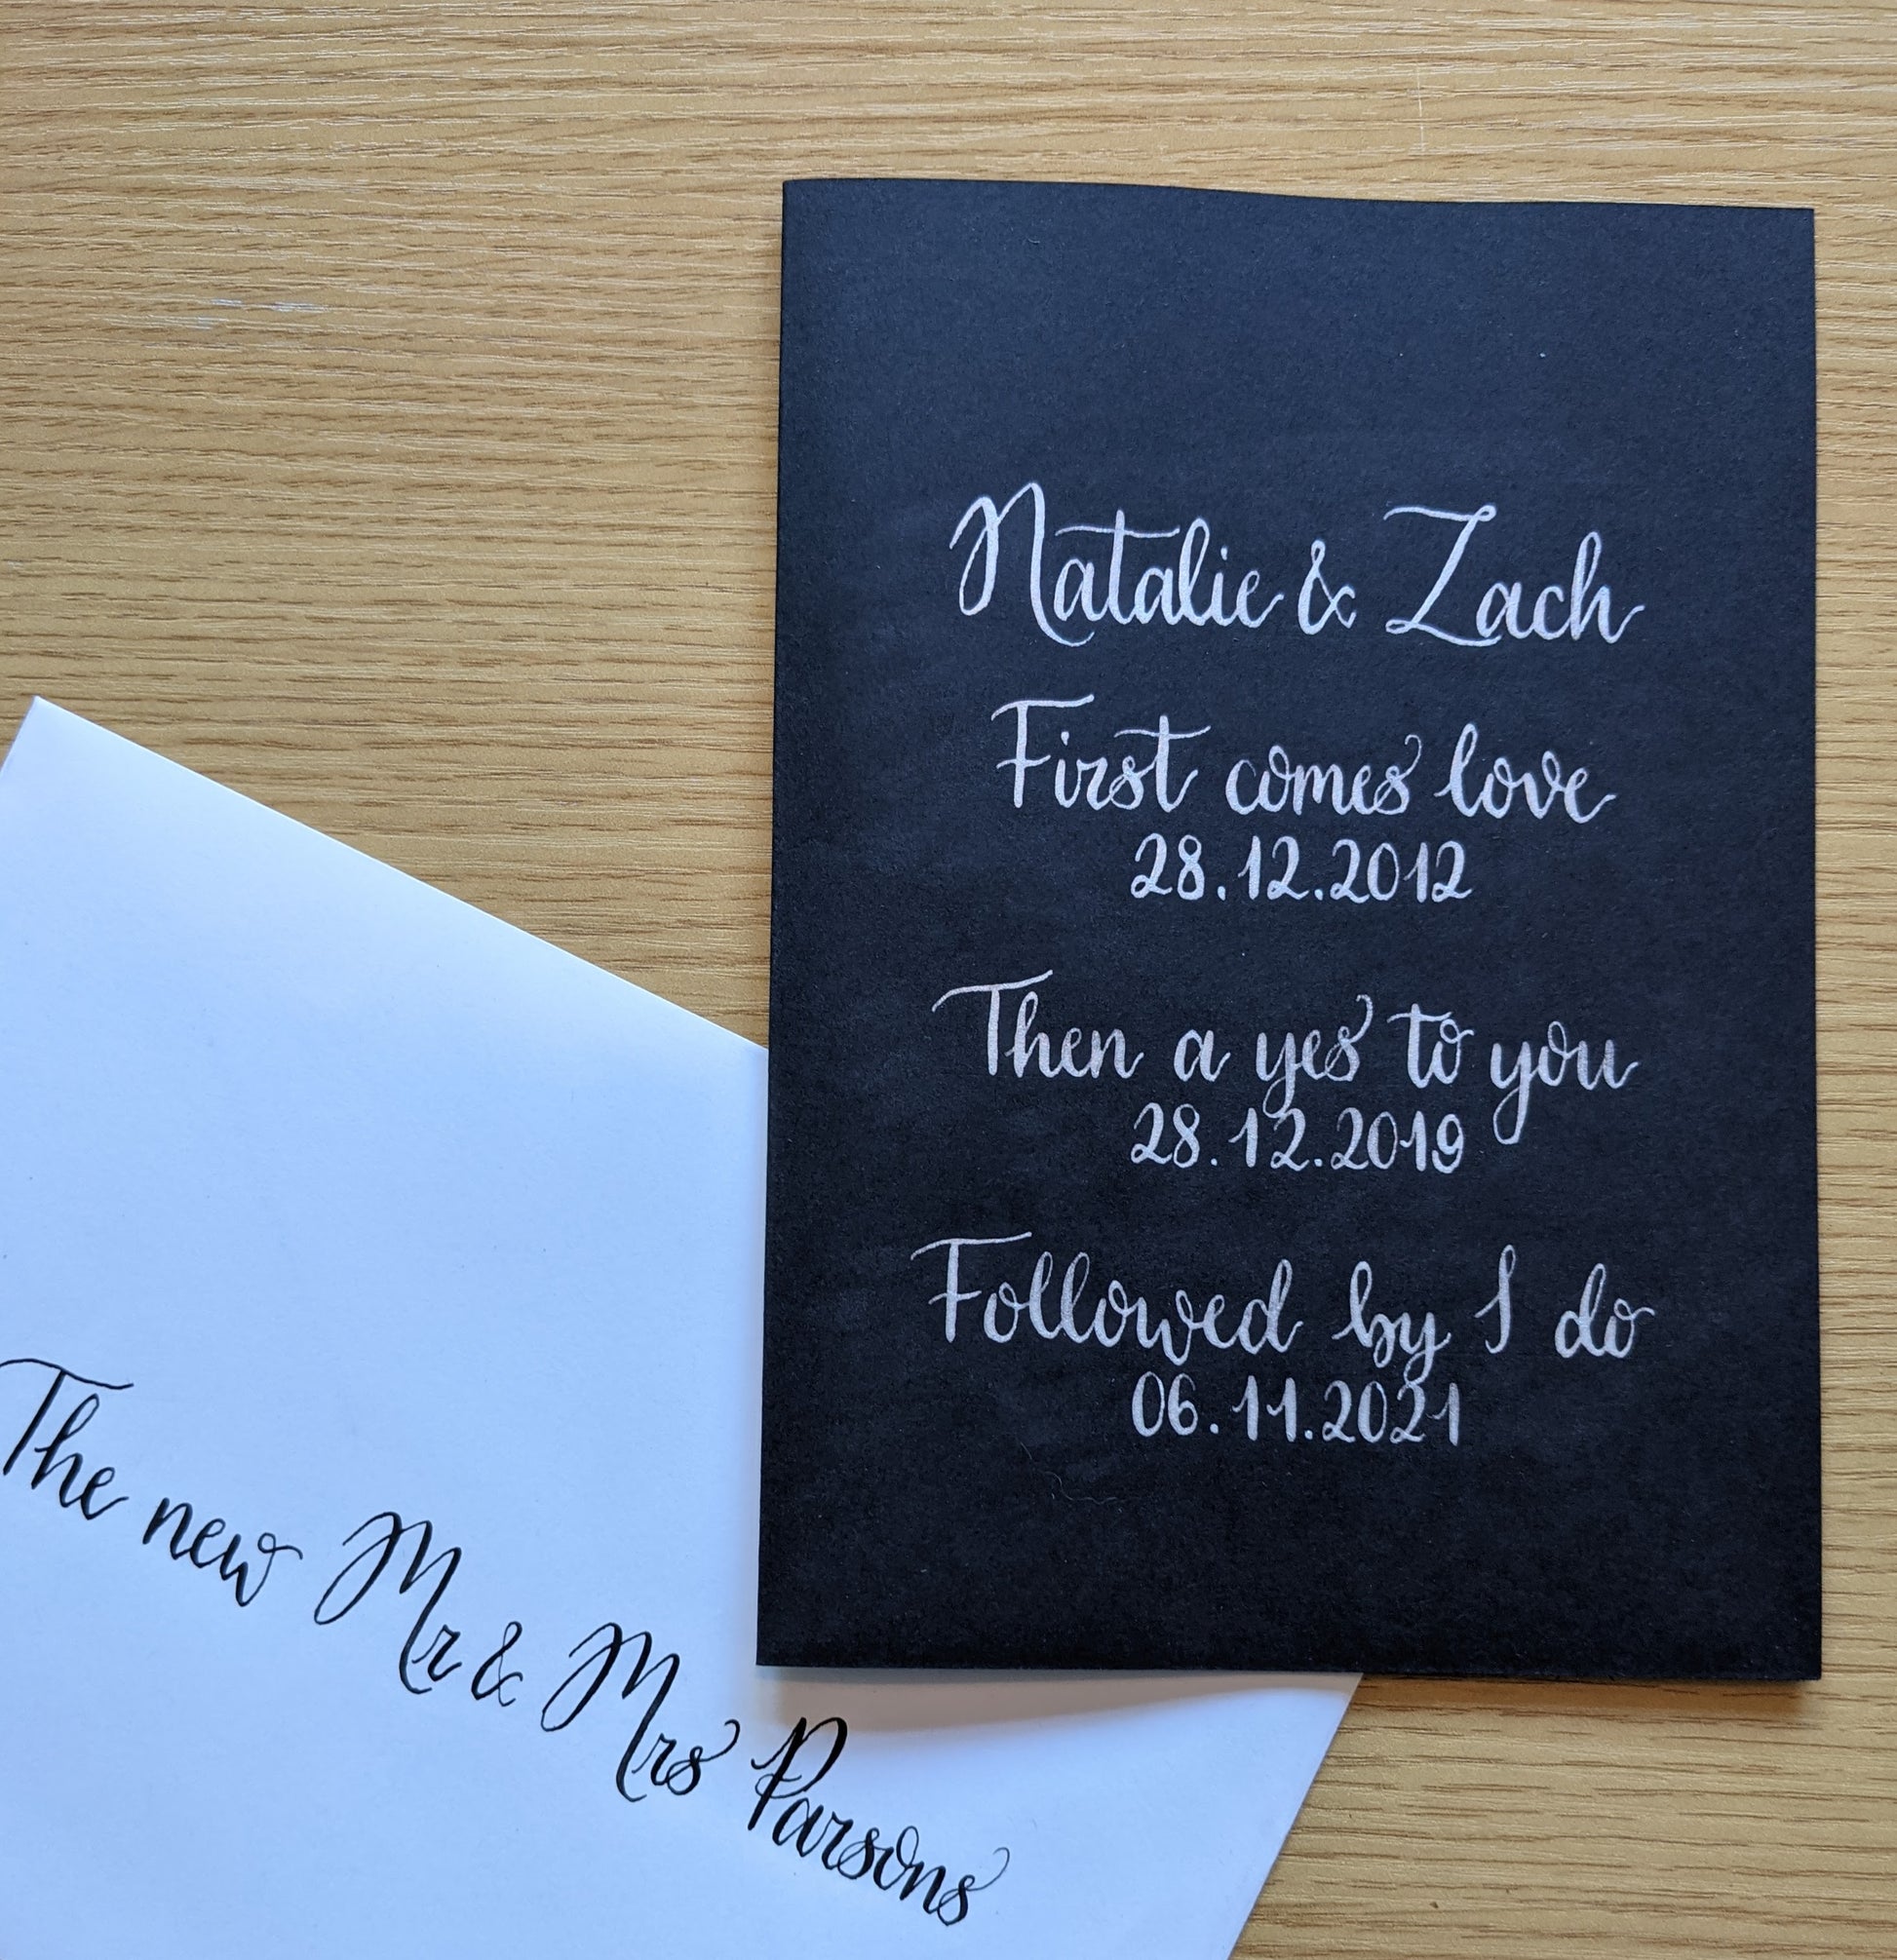 Natalie & Zach
First comes love
28.12.2012
Then a yes to you
28.12.2019
Followed by I do
06.11.2021
The new Mr & Mrs Parsons